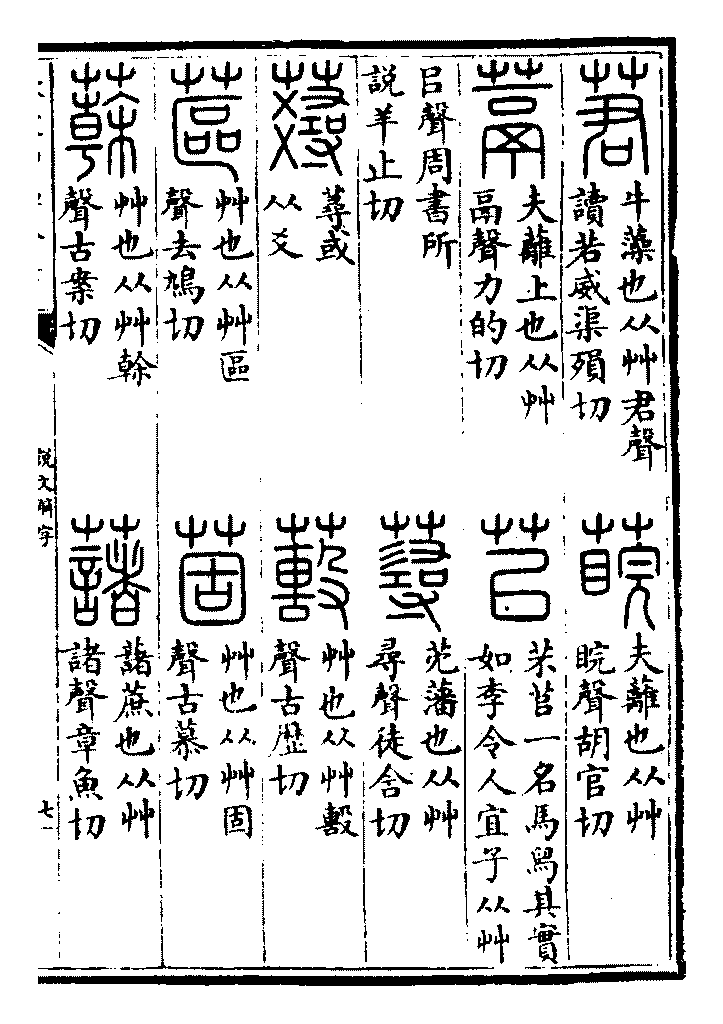 莙
牛藻也从艸君聲
讀若威渠殞切
夫蘺也从艸
睆聲胡官切
蒚
夫蘺上也从艸
鬲聲力的切
苢
芣苢一名馬舄其實
如李令人宜子从艸
㠯聲周書所
說羊止切
蕁
芫藩也从艸
尋聲徒含切
蕁或
从爻
艸也从艸毄
聲古歷切
蓲
艸也从艸區
聲去鳩切
䓢
艸也从艸固
聲古慕切
艸也从艸榦
聲古案切
藷
藷蔗也从艸
諸聲章魚切
說文解字
七